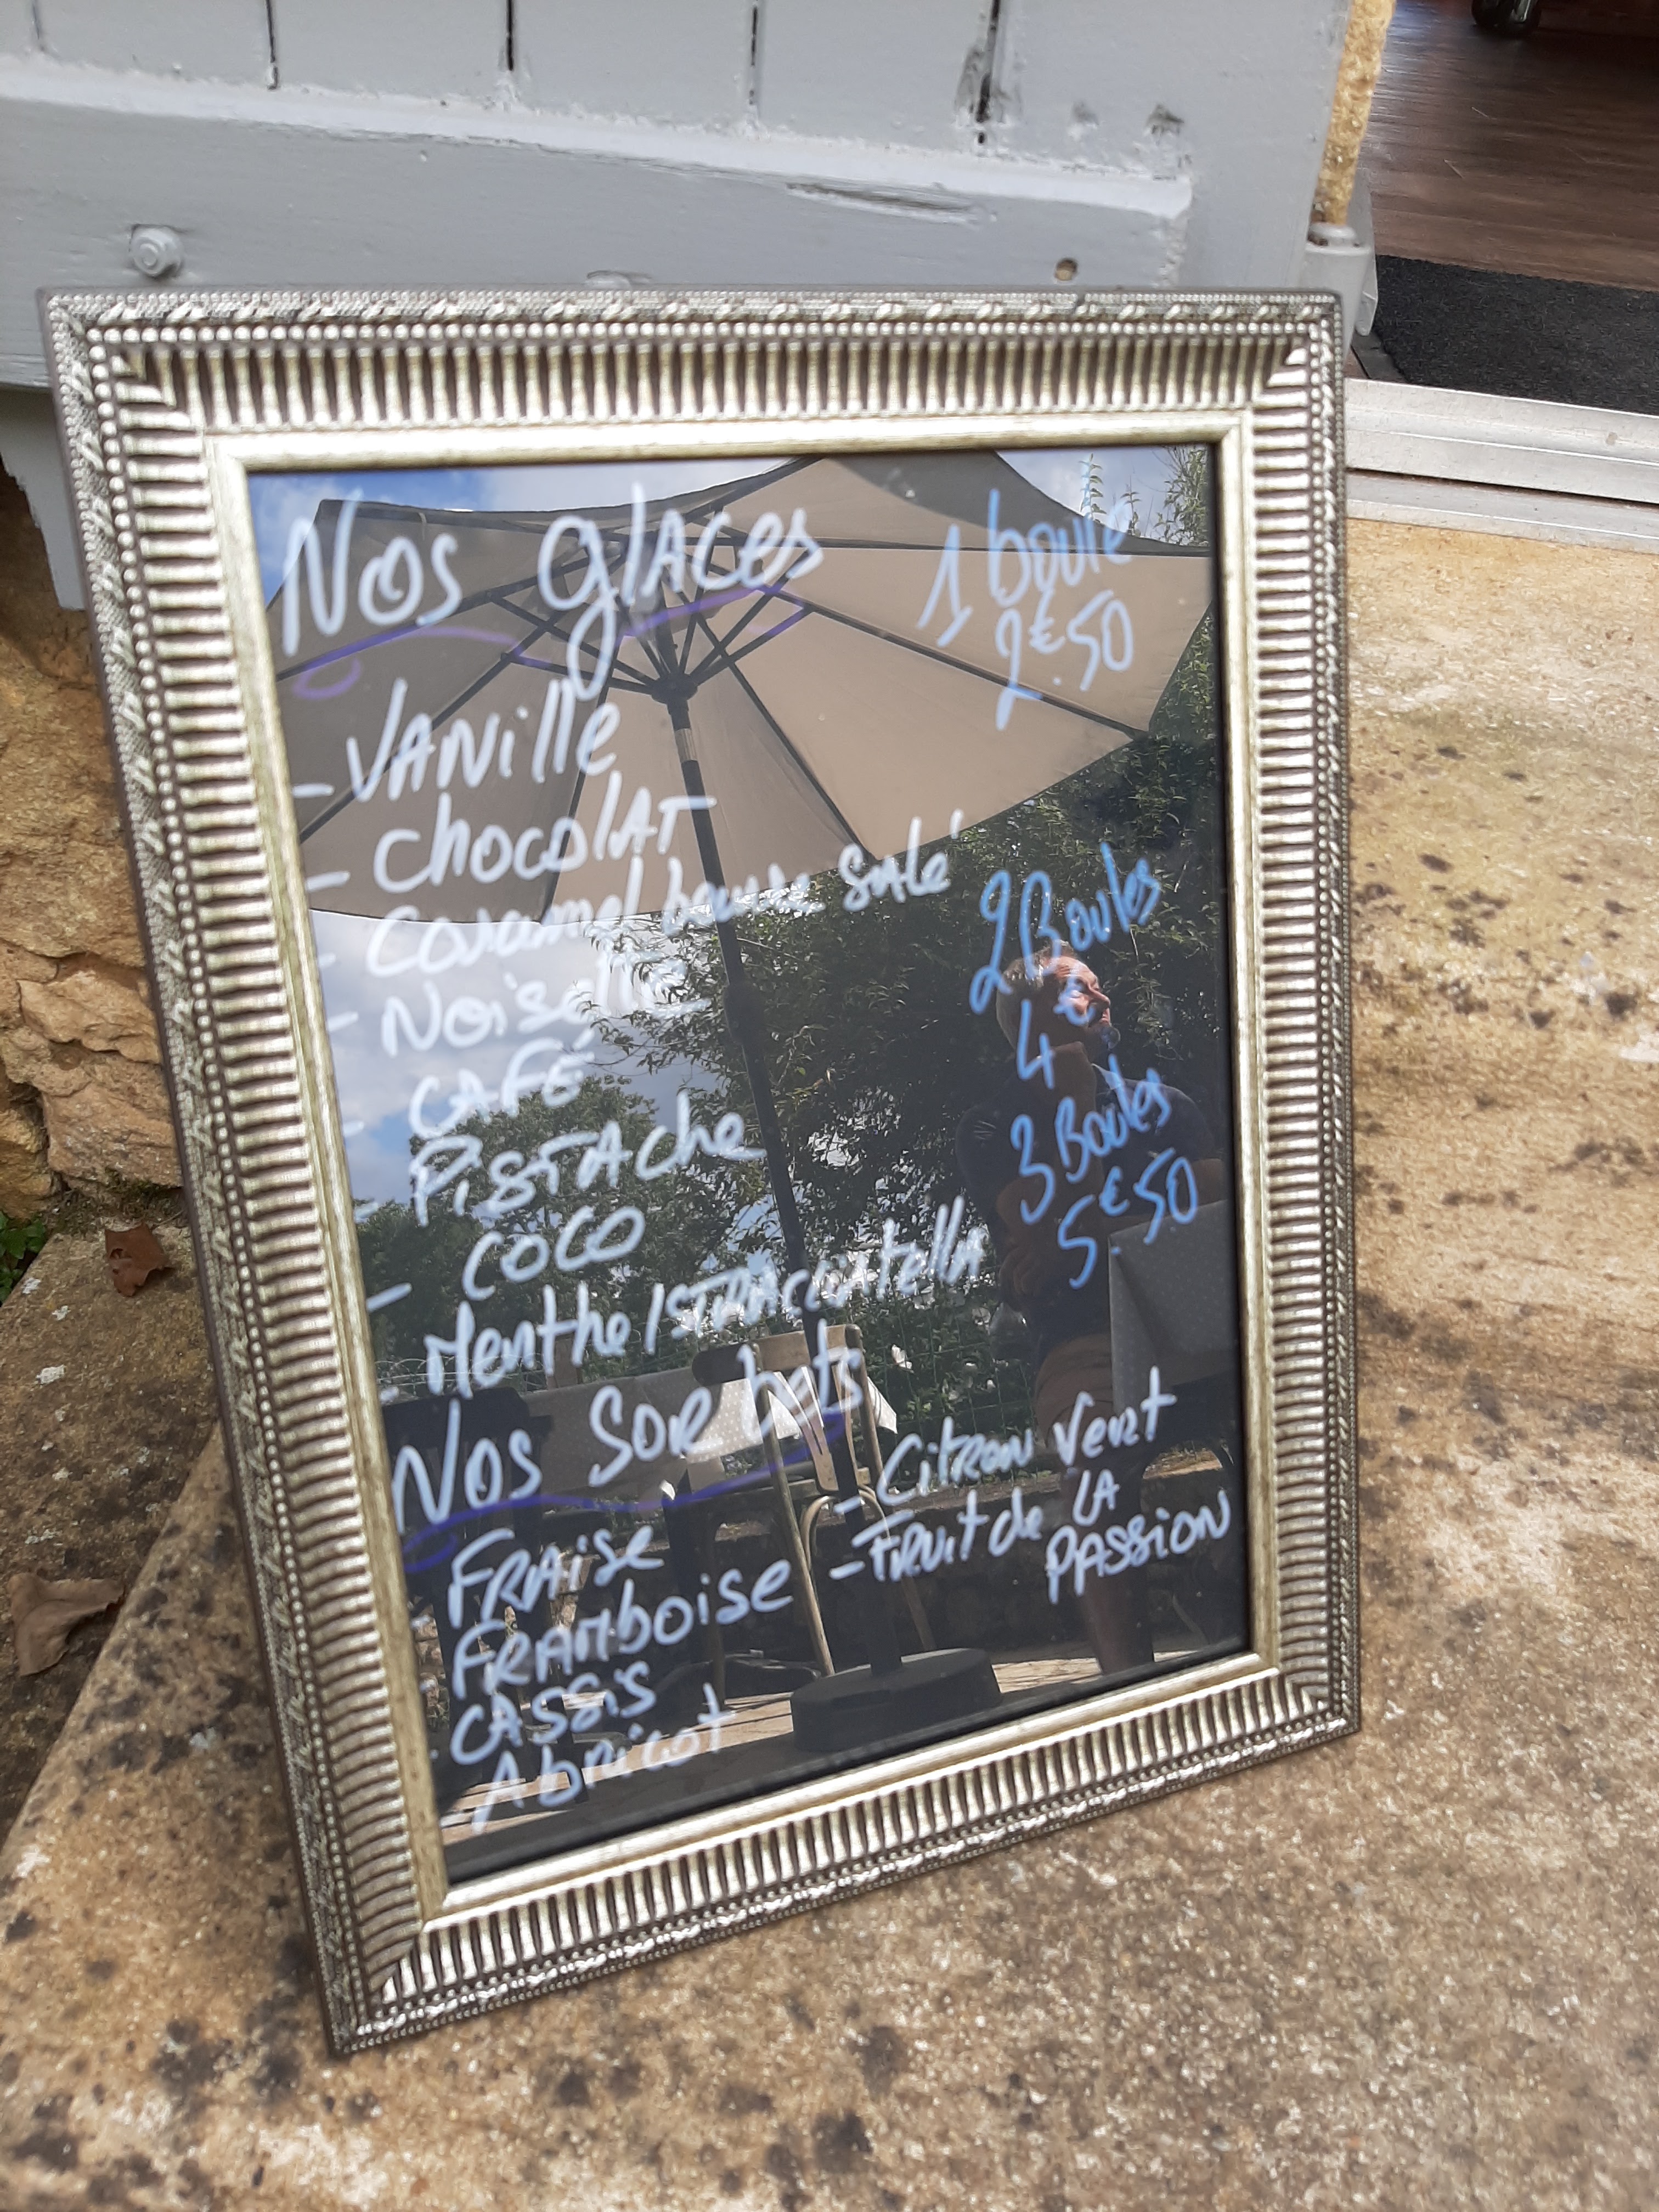 Nos glaces
- Vanille
- chocolat
- Caramel beurre salé
- Noisette
- CAFÉ
- Pistache
- coco
- Menthe / STRACCIATELLA
1 boule
2€.50
2 Boules
4€
3 Boules
5€.50
Nos Sorbets
- Fraise
- Framboise
- CASSIS
- Abricot
- Citron Vert
- Fruit de LA
PASSION